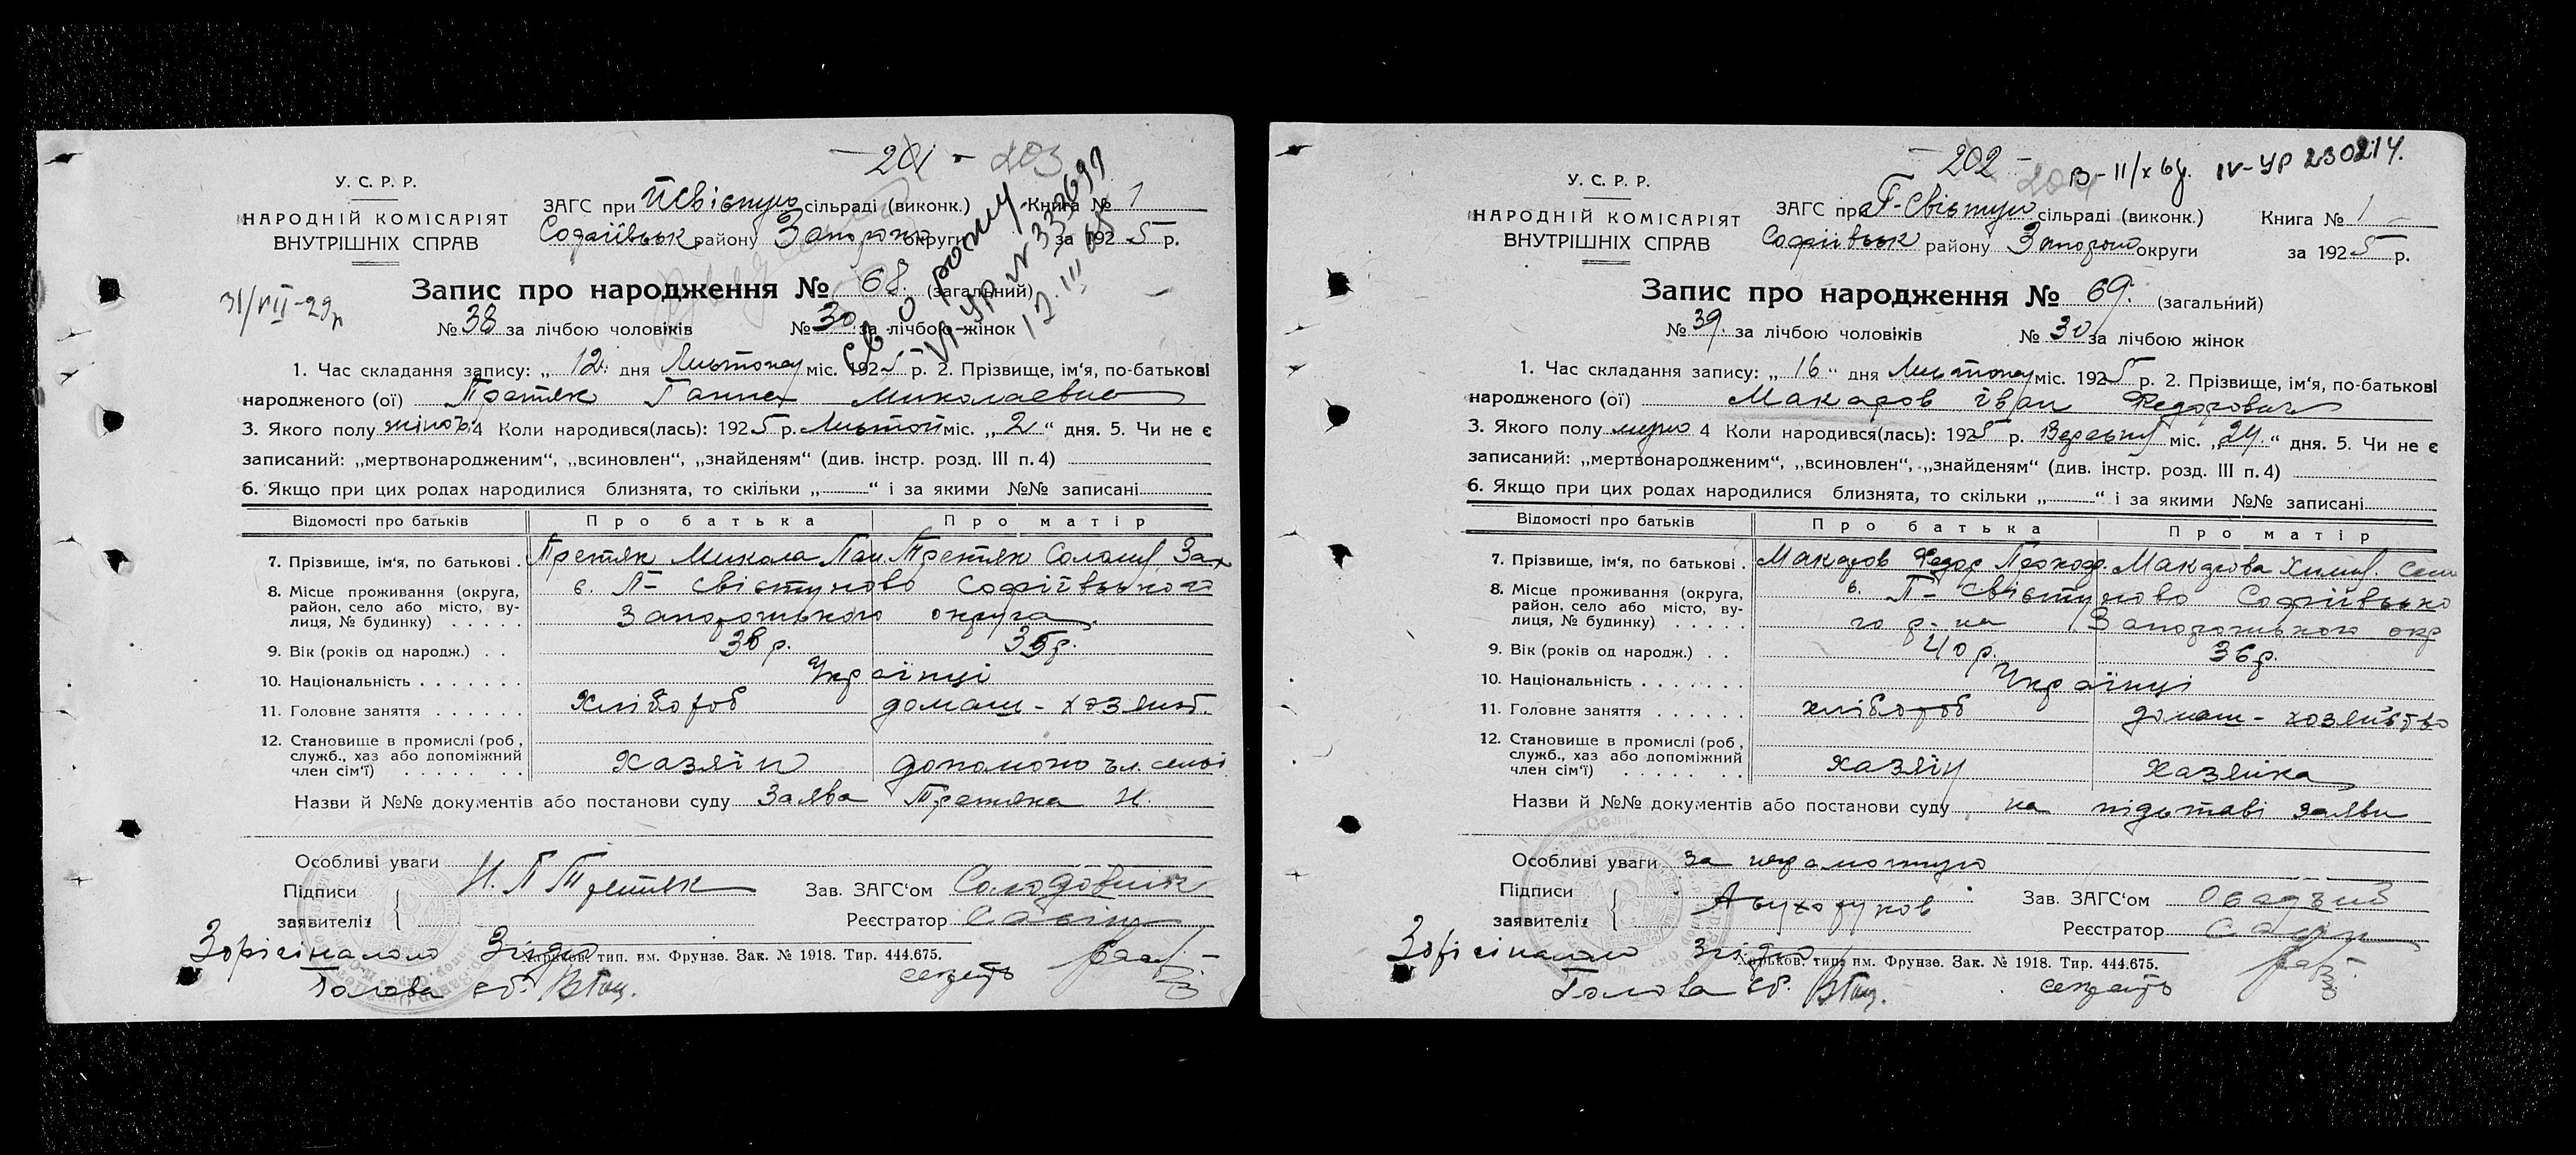 201 - 203
У. С. Р. Р.
НАРОДНІЙ КОМІСАРІЯТ
ВНУТРІШНІХ СПРАВ
ЗАГС при П Свістуно сільраді (виконк.) Книга № 1
Софіївськ району Запорожо округи за 1925 р.
Запис про народження № 68. (загальний)
31/VII-29р
№ 38 за лічбою чоловіків № 30 за лічбою жінок
1. Час складання запису: „ 12. дня Листопад міс. 1925 р. 2. Прізвище, ім‘я, по-батькові
народженого (ої) Третяк Ганна Миколаевна
3. Якого полу жіноч. 4 Коли народився(лась): 1925 р. Листоп міс. „ 2 “ дня. 5. Чи не є
записаний: „мертвонародженим“, „всиновлен“, „знайденям“ (див. інстр. розд. III п. 4)
6. Якщо при цих родах народилися близнята, то скільки „ “ і за якими №№ записані
Відомості про батьків Про батька Про матір
7. Прізвище, ім‘я, по батькові . Третяк Микола Пан Третяк Солом. Зах
8. Місце проживання (округа, район, село або місто, вулиця, № будинку) с. П- Свістуново Софіївського
Запорожького округа.
9. Вік (років од народж.) . . 38 р. 35 р.
10. Національність . . . . . . . Українці
11. Головне заняття . . . . . . Хлібороб домаш- хозяйст.
12. Становище в промислі (роб, служб., хаз або допоміжний член сім‘ї) . . . . . . . Хазяін допоможо чл. семьі
Назви й №№ документів або постанови суду Заява Третяка Н.
Особливі уваги
Підписи
заявителів Н. П Третяк
Зав. ЗАГС‘ом Солодовник
Реєстратор
Харьков. тип. им. Фрунзе. Зак. № 1918. Тир. 444.675.
Зорігіналом Згідно
Голова с/р. секрет
- 202 -
В- 11/х 6 IV-УР 230214.
У. С. Р. Р.
НАРОДНІЙ КОМІСАРІЯТ
ВНУТРІШНІХ СПРАВ
ЗАГС при П-Свістуно сільраді (виконк.) Книга № 1
Софіївськ району Запорожо округи за 1925 р.
Запис про народження № 69. (загальний)
№ 39. за лічбою чоловіків № 30 за лічбою жінок
1. Час складання запису: „ 16 “ дня Листопад міс. 1925 р. 2. Прізвище, ім‘я, по-батькові
народженого (ої) Макаров Іван Федорович
3. Якого полу мужо 4 Коли народився(лась): 1925 р. Вересня міс. „ 24. “ дня. 5. Чи не є
записаний: „мертвонародженим“, „всиновлен“, „знайденям“ (див. інстр. розд. III п. 4)
6. Якщо при цих родах народилися близнята, то скільки „ “ і за якими №№ записані
Відомості про батьків Про батька Про матір
7. Прізвище, ім‘я, по батькові . Макаров Федор Прохор. Макарова Сем
8. Місце проживання (округа, район, село або місто, вулиця, № будинку) с. П- Свістуново Софіївсько
го р-на Запорожького окр
9. Вік (років од народж.) . . 40 р. 36 р.
10. Національність . . . . . . . Українці
11. Головне заняття . . . . . . хлібороб домаш- хозяйство
12. Становище в промислі (роб, служб., хаз або допоміжний член сім‘ї) . . . . . . . хазяін хазяйка
Назви й №№ документів або постанови суду на підставі заяви
Особливі уваги за неграмотную
Підписи
заявителів
Зав. ЗАГС‘ом
Реєстратор
Харьков. тип. им. Фрунзе. Зак. № 1918. Тир. 444.675.
Зорігіналом Згідно
Голова с/р. секрет